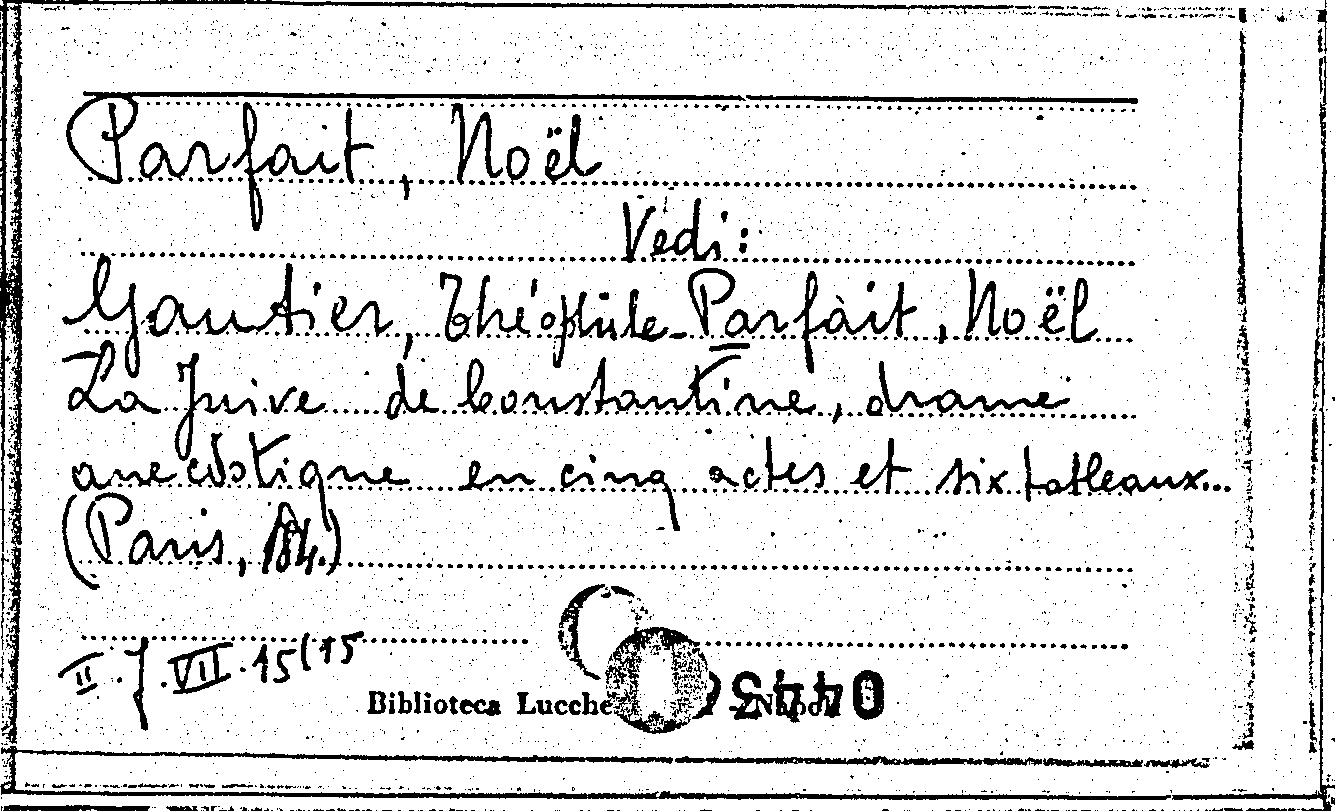 Parfait, Noël
Vedi:
Gautier, Théophile - Parfait, Noël
La Juive de Constantine, drame
anecdotique en cinq actes et six tableaux...
(Paris, 184.)
II. J. VII. 15(15
Biblioteca Lucche